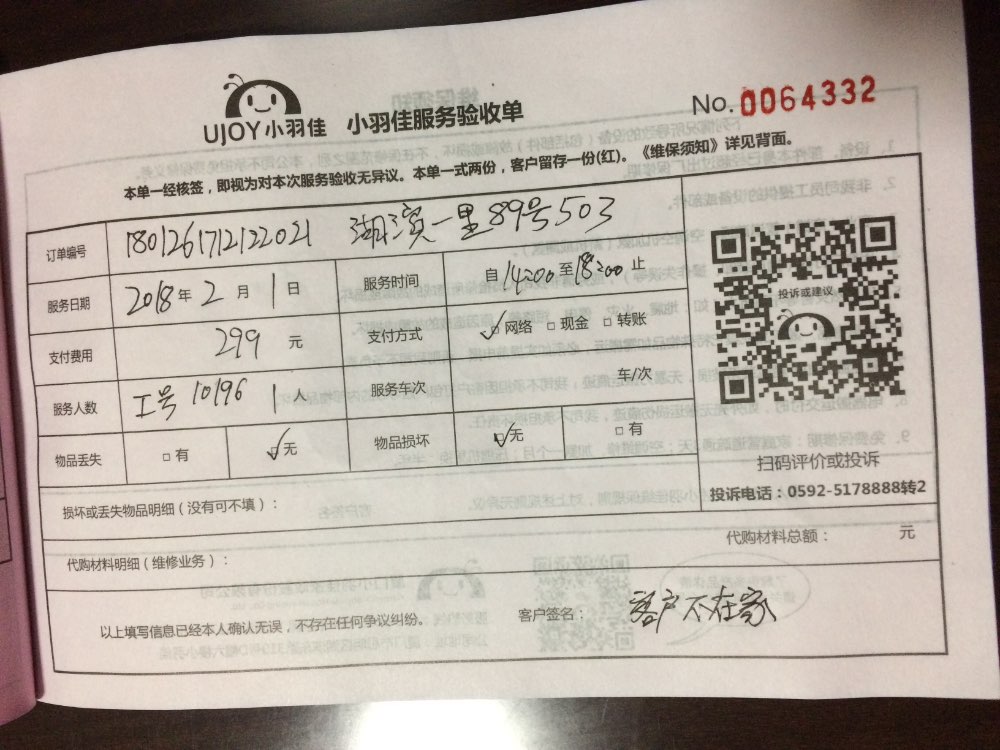 UJOY小羽佳 小羽佳服务验收单 No. 0064332
本单一经核签，即视为对本次服务验收无异议。本单一式两份，客户留存一份(红)。《维保须知》详见背面。
订单编号 180126171212202​1 湖滨一里89号503
服务日期 2018年2月1日 服务时间 自14:00至18:00止
支付费用 299元 支付方式 ✓□网络 □现金 □转账
服务人数 工号10196 1人 服务车次 车/次
物品丢失 □有 ✓□无 物品损坏 ✓□无 □有
投诉或建议
扫码评价或投诉
投诉电话：0592-5178888转2
损坏或丢失物品明细（没有可不填）：
代购材料明细（维修业务）： 代购材料总额： 元
以上填写信息已经本人确认无误，不存在任何争议纠纷。 客户签名： 客户不在家